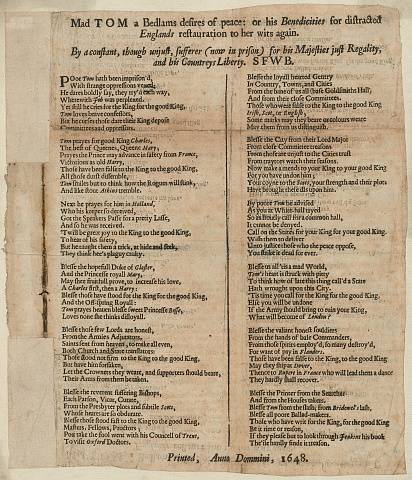 Mad TOM a Bedlams desires of peace: or his Benedicities for distracted
Englands restauration to her wits again.
By a constant, though unjust, sufferer (now in prison) for his Majesties just Regality,
and his Countreys Liberty. S F W B.
POor Tom hath been imprison'd,
With strange oppressions vexed;
He dares boldly say, they try'd each way,
Wherewith Job was perplexed.
Yet still he cries for the King for the good King,
Tom loves brave confessors,
But he curses those dare their King depose
Committees and oppressors.
Tom prayes for good King Charles,
The best of Queenes, Queene Mary,
Prayes the Prince may advance in safety from France,
Victorious as old Harry,
Those have been fill'd for the King for the good King,
All those dum distressible,
Tom smiles but to think how the Rogues will stink,
And like stout atchive tremble.
Next he prayes for him in Holland,
Who his keeper so deceived,
Got the Speakers Passe for a pretty Lasse,
And so he was received.
'Twill be great joy to the King to the good King,
To hear of his safety,
But he meets them a trick, at hide and seek,
They think hee's plaguy crafty.
Blesse the hopefull Duke of Gloster,
And the Princesse royall Mary,
May they fruitfull prove, to increase his love,
A Charles first, then a Mary:
Blesse those have stood for the King for the good King,
And the Off-spring Royall:
Tom prayes heaven blesse sweet Princesse Besse,
Loves none she thinks disloyall.
Blesse those few Lords are honest,
From the Armies Adjutators,
Saints sent from heaven, to make all even,
Both Church and State translators:
Those stood not firm to the King to the good King,
But have him forsaken,
Let the Crownets they weare, and supporters should beare,
Their Arms from them be taken.
Blesse the reverent suffering Bishops,
Each Parson, Vicar, Curate,
From the Presbyter plots and subtile Scots,
Whose hearts are so obdurate
Blesse those stood fast to the King to the good King,
Masters, Fellows, Proctors;
Pox take the fool went with his Councell of Trent,
To visit Oxford Doctors.
Blesse the loyall hearted Gentry
In Country, Towns, and Cities
From the bane of us all (base Goldsmiths Hall,
And from their close Committees.
Those who were faithfull to the King to the good King
Irish, Scots, or English,
Some mark may they beare or colours weare
May them from us distinguish.
Blesse the City from their Lord Major
From close Committee treasons
From those are urgent to the Cities trust
From traytors watch their seasons,
Now make amends to your King to your good King
For you have undon him;
Your coyne to the Scots, your strength and their plots
Have brought these ills upon him.
By poore Tom be advised
As you at White-hall tryed
So joyntly call for a common hall,
It cannot be denyed.
Call on the Saints for your King for your good King
Wish them to deliver
Unto justice those who the peace oppose,
You strike it dead for ever.
Blesse us all 'tis a mad World,
Tom's heart is struck with piety
To think how of late this thing call'd a State
Hath wrought upon this City.
'Tis time you call for the King for the good King,
Else you will be undone
If the Army should bring to ruin your King,
What will become of London?
Blesse the valiant honest souldiers
From the hands of base Commanders,
From those spirits employ'd, so many destroy'd,
For want of pay in Flanders.
Those have been faithfull to the King, to the good King
May they ship at Dover,
Thence to Rupert in France who will lead them a dance
They hardly shall recover.
Blesse the Printer from the Searcher
And from the Houses takers,
Blesse Tom from the slash; from Bridewel's lash,
Blesse all poore Ballad-makers.
Those who have writ for the King, for the good King
Be it rime or reason,
If they please but to look through Jenkins his book
The'le hardly finde it treason.
Printed, Anno Dommini, 1648.